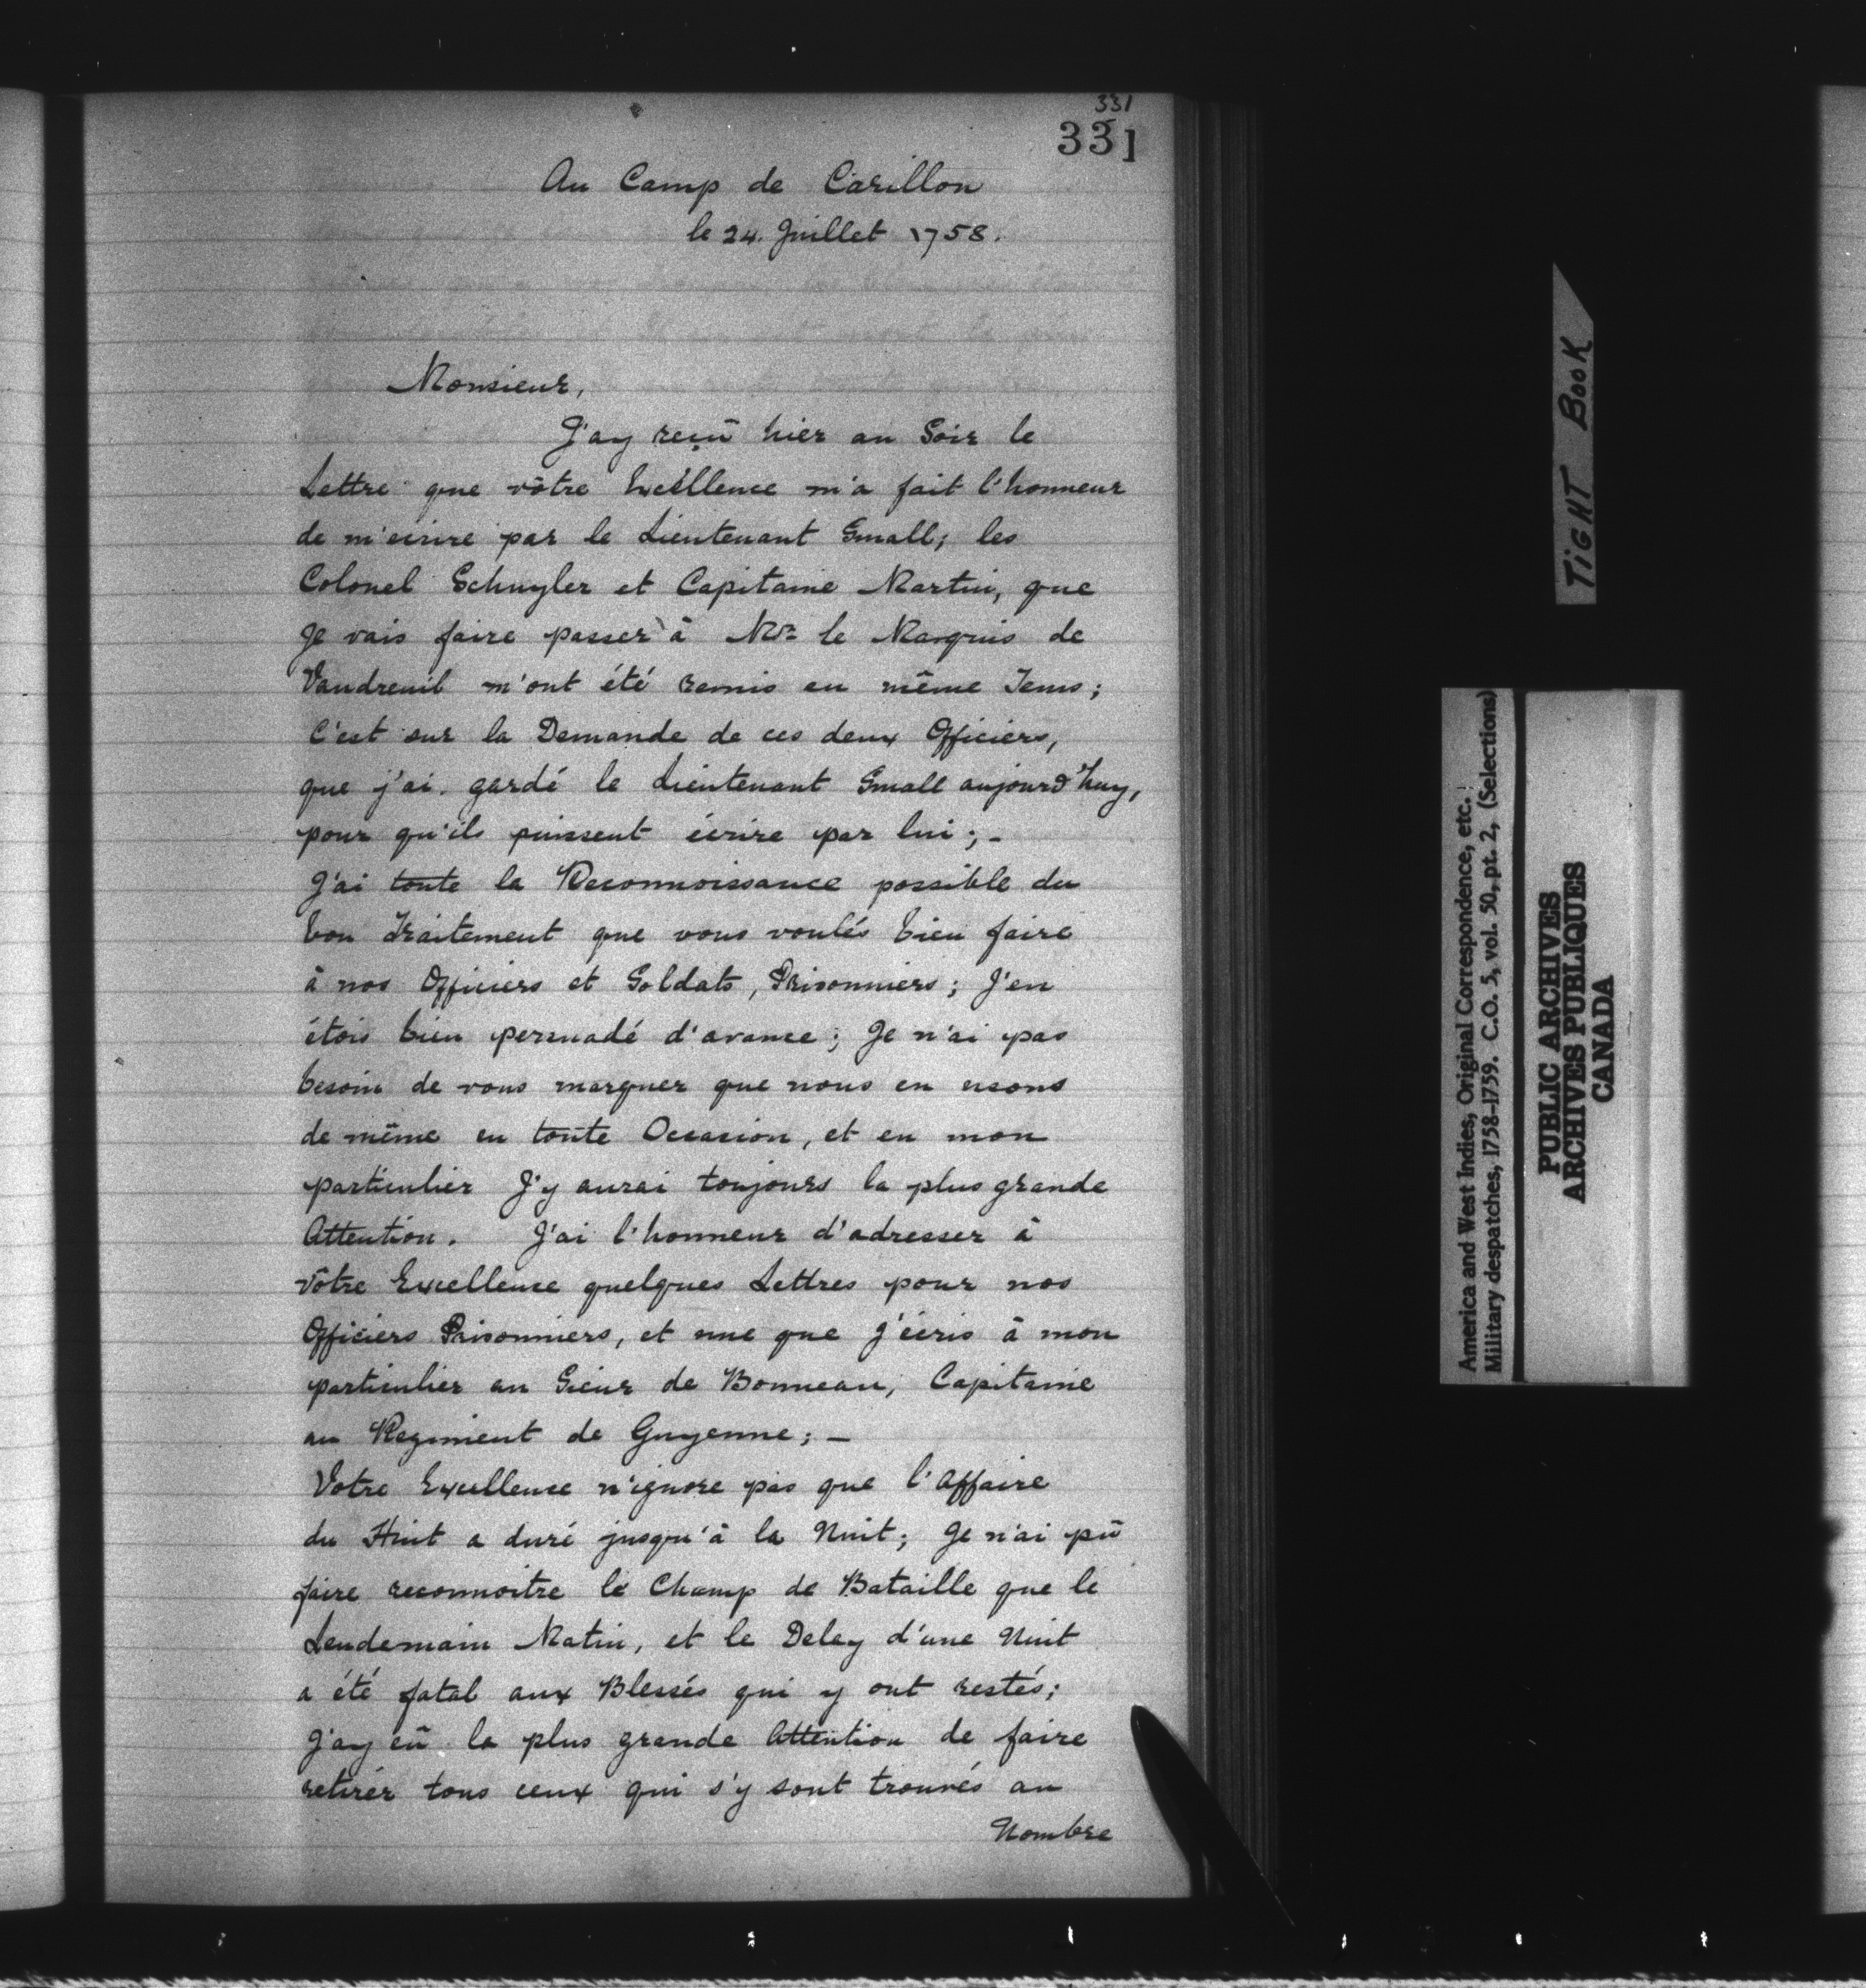 331
331
Au Camp de Carillon
le 24. Juillet 1758.
Monsieur,
J'ay reçû hier au Soir le
Lettre que vôtre Excellence m'a fait l'honneur
de m'ecrire par le Lieutenant Small; les
Colonel Schuyler et Capitaine Martin, que
Je vais faire passer à Mr. le Marquis de
Vaudreuil m'ont été remis en même Tems;
C'est sur la Demande de ces deux Officiers,
que j'ai gardé le Lieutenant Small aujourd'huy,
pour qu'ils puissent écrire par lui;-
J'ai toute la Reconnoissance possible du
bon Traitement que vous voulés bien faire
à nos Officiers et Soldats, Prisonniers; J'en
étois bien persuadé d'avance; Je n'ai pas
besoin de vous marquer que nous en usons
de même en toute Occasion, et en mon
particulier J'y aurai toujours la plus grande
Attention. J'ai l'honneur d'adresser à
vôtre Excellence quelques Lettres pour nos
Officiers Prisonniers, et une que J'écris à mon
particulier au Sieur de Bonneau, Capitaine
au Regiment de Guyenne;-
Votre Excellence n'ignore pas que l'Affaire
du Huit a duré jusqu'à la Nuit; Je n'ai pû
faire reconnoitre le Champ de Bataille que le
Lendemain Matin, et le Delay d'une Nuit
a été fatal aux Blessés qui y ont restés;
J'ay eû la plus grande Attention de faire
retirer tous ceux qui s'y sont trouvés au
Nombre
TIGHT BOOK
America and West Indies, Original Correspondence, etc.
Military despatches, 1758-1759. C.O. 5, vol. 50, pt. 2, (Selections)
PUBLIC ARCHIVES
ARCHIVES PUBLIQUES
CANADA